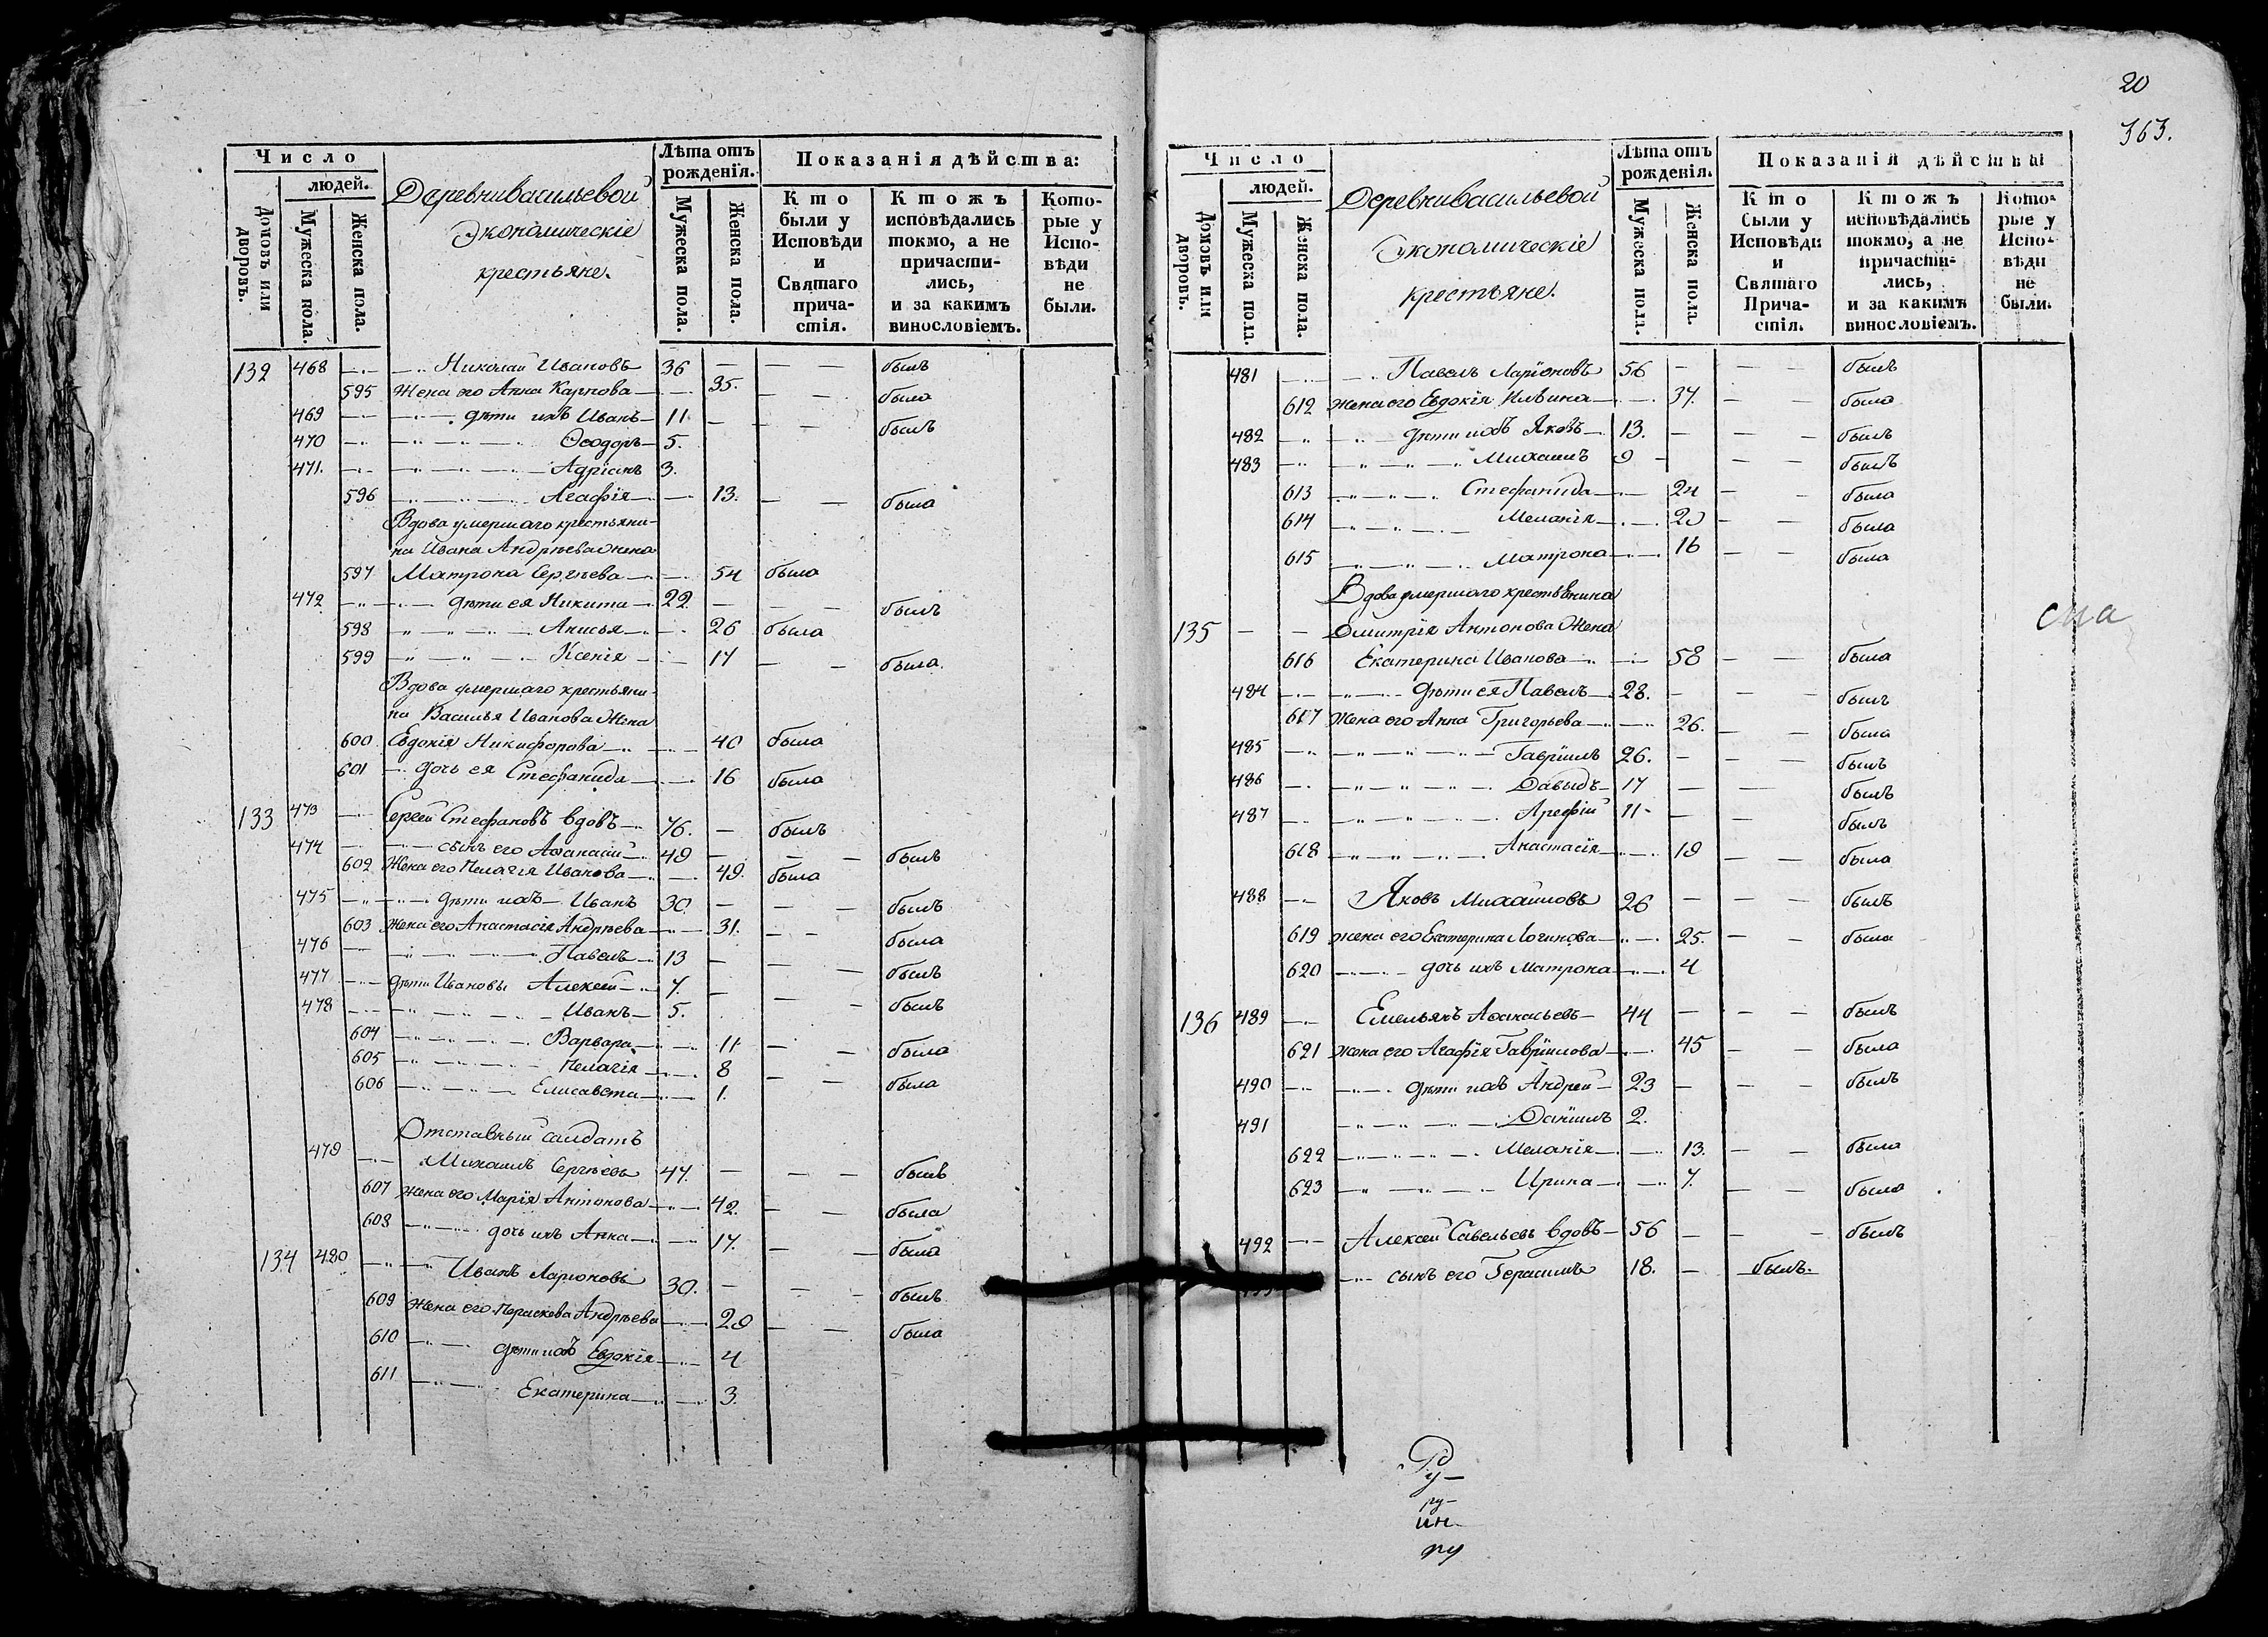 Число
людей.
Домовъ или дворовъ.
Мужеска пола.
Женска пола.
Деревни Васильевой
Экономическіе
крестьяне.
Лѣта отъ рожденія.
Мужеска пола.
Женска пола.
Показанія дѣйства:
Кто были у Исповѣди и Святаго причастія.
Ктожъ исповѣдались токмо, а не причастились, и за какимъ винословіемъ.
Которые у Исповѣди не были.
132 468 Николай Ивановъ 36 былъ
595 Жена его Анна Карпова 35. была
469 дѣти ихъ Иванъ 11 былъ
470 Ѳеодоръ 5.
471. Адріанъ 3.
596 Агафія 13. была
Вдова умершаго крестьяни-
на Ивана Андрѣева жена
597 Матрона Сергѣева 54 была
472 дѣти ея Никита 22. былъ
598 Анисья 26 была
599 Ксенія 17 была.
Вдова умершаго крестьяни-
на Василья Иванова Жена
600 Евдокія Никифорова 40 была
601 дочь ея Стефанида 16 была
133 473 Сергей Стефановъ вдовъ 76. былъ
474 сынъ его Афанасій 49 былъ
602 Жена его Пелагія Иванова 49. была
475 дѣти ихъ Иванъ 30. былъ
603 Жена его Анастасія Андрѣева 31. была
476 Павелъ 13 былъ
477 дѣти Ивановы Алексей 7. былъ
478 Иванъ 5.
604 Варвара 11 была
605 Пелагія 8 была
606 Елисавета 1.
Отставный салдатъ
479 Михаилъ Сергѣевъ 47. былъ
607 Жена его Марія Антонова 42. была
608 дочь ихъ Анна 17. была
134 480 Иванъ Ларионовъ 30. былъ
609 Жена его Параскева Андрѣева 29 была
610 дѣти ихъ Евдокія 4
611 Екатерина 3.
20
363.
Число
людей.
Домовъ или дворовъ.
Мужеска пола.
Женска пола.
Деревни Васильевой
Экономическіе
крестьяне.
Лѣта отъ рожденія.
Мужеска пола.
Женска пола.
Показанія дѣйства
Кто были у Исповѣди и Святаго Причастія.
Ктожъ исповѣдались токмо, а не причастились, и за какимъ винословіемъ.
Которые у Исповѣди не были.
481 Павелъ Ларіоновъ 56 былъ
612 жена его Евдокія Ильина 37. была
482 дѣти ихъ Яковъ 13. былъ
483 Михаилъ 9 былъ
613 Стефанида 24 была
614 Меланія 20 была
615 Матрона 16 была
Вдова умершаго крестьянина
135 Димитрія Антонова Жена
616 Екатерина Иванова 58 была
484 дѣти ея Павелъ 28. былъ
617 Жена его Анна Григорьева 26. была
485 Гавріилъ 26. былъ
486 Давыдъ 17 былъ
487 Арефій 11 былъ
618 Анастасія 19 была
488 Яковъ Михаиловъ 26 былъ
619 жена его Екатерина Логинова 25. была
620 дочь ихъ Матрона 4
136 489 Емельянъ Афанасьевъ 44 былъ
621 жена его Агафія Гавріилова 45 была
490 дѣти ихъ Андрей 23 былъ
491 Даніилъ 2.
622 Меланія 13. была
623 Ирина 7. была
492 Алексей Савельевъ вдовъ 56 былъ
сынъ его Герасимъ 18. былъ.
ру-
ин-
ру